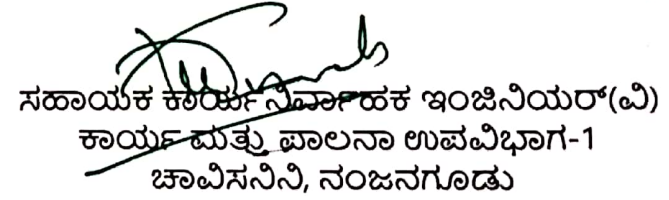 ಸಹಾಯಕ ಕಾರ್ಯನಿರ್ವಾಹಕ ಇಂಜಿನಿಯರ್(ವಿ)
ಕಾರ್ಯ ಮತ್ತು ಪಾಲನಾ ಉಪವಿಭಾಗ-1
ಚಾವಿಸನಿನಿ, ನಂಜನಗೂಡು